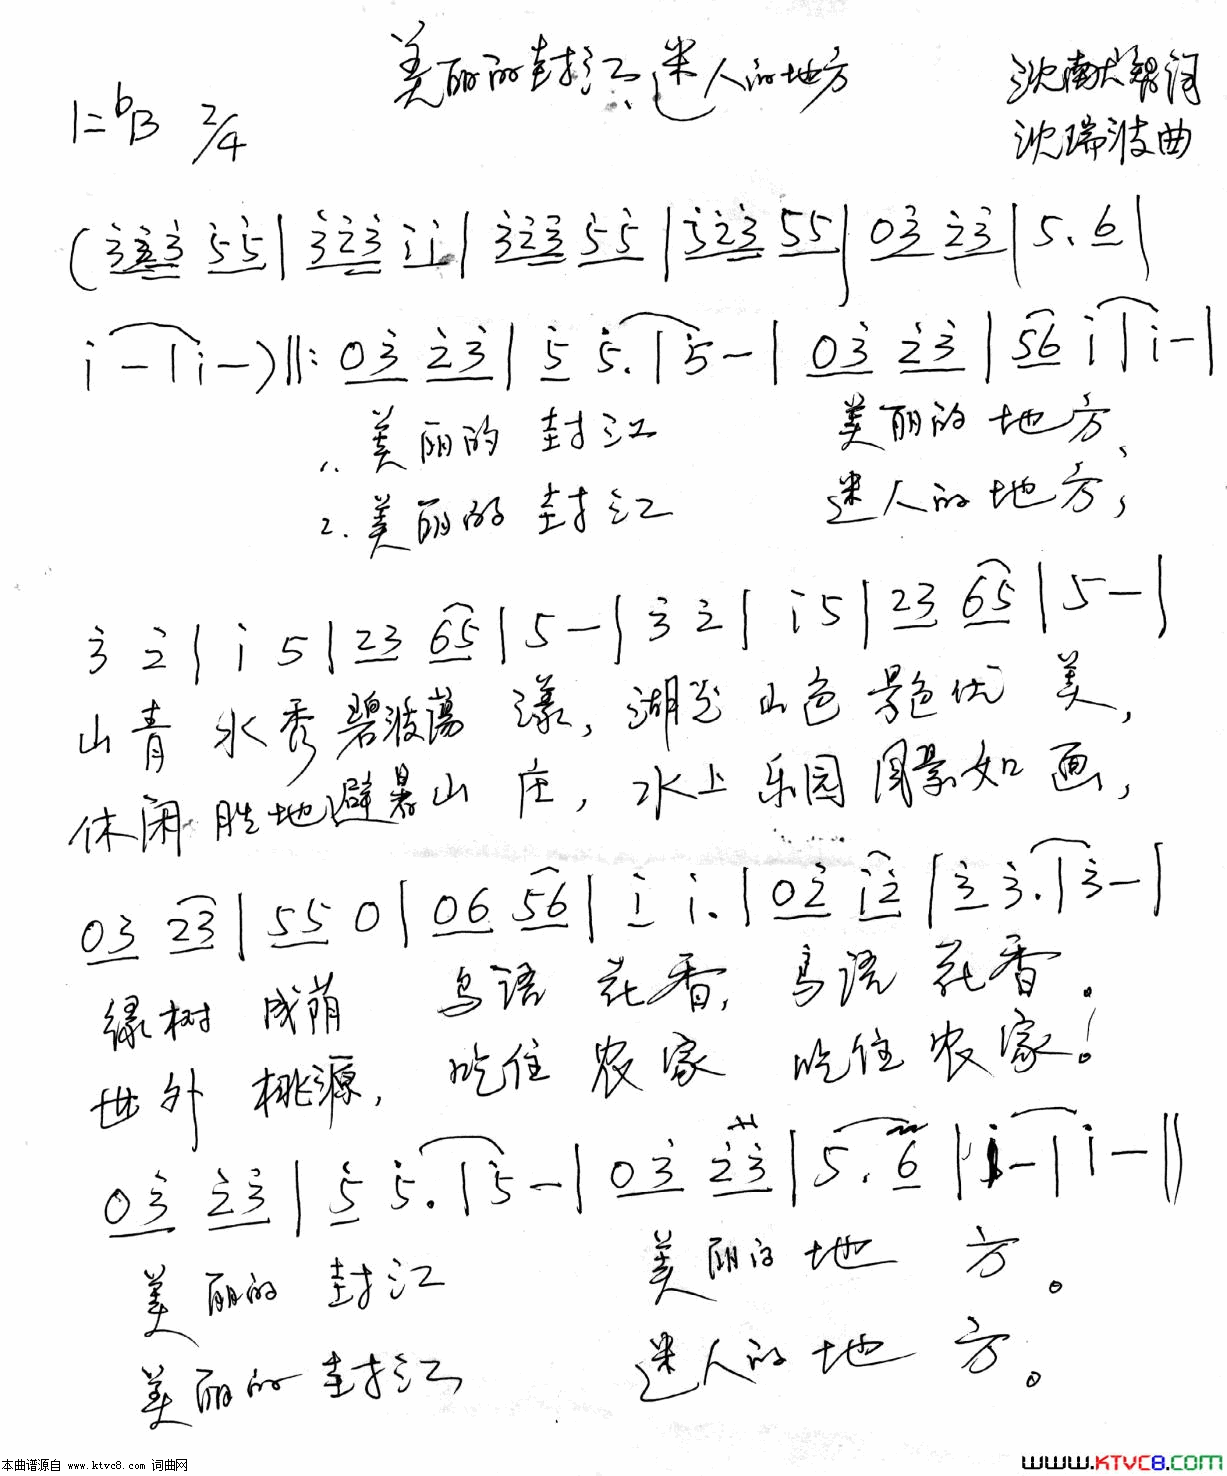 美丽的封江、迷人的地方
1=ᵇB 2/4
词
沈瑞波曲
(3̇3̇3̇ 5̇5̇|3̇2̇3̇ i i|3̇2̇3̇ 5̇5̇|3̇2̇3̇ 55|03̇ 2̇3̇|5. 6|
i -|i -)‖: 03̇ 2̇3̇|5̇ 5̇.|5̇ -|03̇ 2̇3̇|56 i|i -|
1. 美丽的 封江 美丽的 地方、
2. 美丽的 封江 迷人的 地方,
3̇ 2̇|i 5|23 65|5 -|3̇ 2̇|i 5|23 65|5 -|
山青 水秀 碧波荡 漾, 湖光 山色 景色优 美,
休闲 胜地 避暑山 庄, 水上 乐园 风景如 画,
03̇ 2̇3̇|55 0|06 56|i i.|02̇ i2̇|3̇ 3̇.|3̇ -|
绿树 成荫 鸟语 花香, 鸟语 花香.
世外 桃源, 吃住 农家 吃住 农家!
03̇ 2̇3̇|5̇ 5̇.|5̇ -|03̇ 2̇3̇|5. 6|i -|i -‖
美丽的 封江 美丽的 地 方。
美丽的 封江 迷人的 地 方。
本曲谱源自 www.ktvc8.com 词曲网
www.KTVC8.com